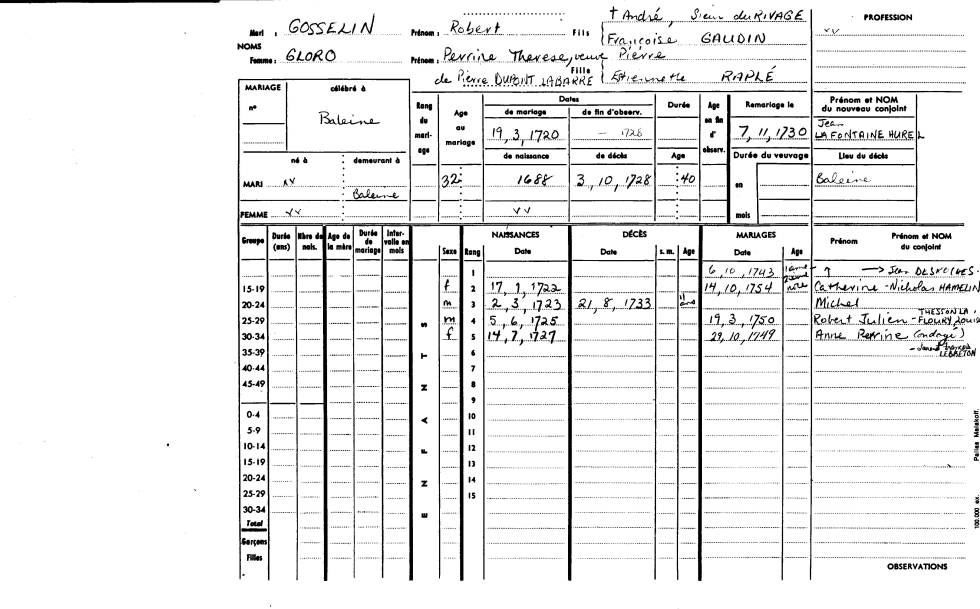 † André, Sieur du RIVAGE
PROFESSION
Mari : GOSSELIN Prénom : Robert Fils Françoise GAUDIN vv
NOMS
Femme : GLORO Prénom : Perrine Therese, veuve Pierre
de Pierre DUPONT LABARRE Fille Etiennette RAPLÉ
MARIAGE célébré à
n° Baleine
Rang du mariage Age au mariage Dates Durée Age en fin d'observ. Remariage le Prénom et NOM du nouveau conjoint
de mariage de fin d'observ.
19, 3, 1720 - 1728 7, 11, 1730 Jean LA FONTAINE HUREL
né à demeurant à de naissance de décès Age Durée du veuvage Lieu du décès
MARI vv Baleine 32 1688 3, 10, 1728 40 en Baleine
FEMME vv vv mois
Groupe Durée (ans) Nbre de nais. Age de la mère Durée de mariage Intervalle en mois Sexe Rang NAISSANCES Date DÉCÈS Date s. m. Age MARIAGES Date Age Prénom Prénom et NOM du conjoint
1 6, 10, 1743 1ère ↑ → Jean
15-19 f 2 17, 1, 1722 14, 10, 1754 Catherine - Nicholas HAMELIN
20-24 m 3 2, 3, 1723 21, 8, 1733 11 ans Michel
25-29 S m 4 5, 6, 1725 19, 3, 1750 Robert Julien - THESSON LA FLOURY Louise
30-34 f 5 14, 7, 1727 29, 10, 1749 Anne Perrine (ondoyé)
35-39 T 6 - LEBRETON
40-44 7
45-49 N 8
9
0-4 A 10
5-9 11
10-14 F 12
15-19 13
20-24 N 14
25-29 15
30-34 E
Total
Garçons
Filles
OBSERVATIONS
100.000 ex.